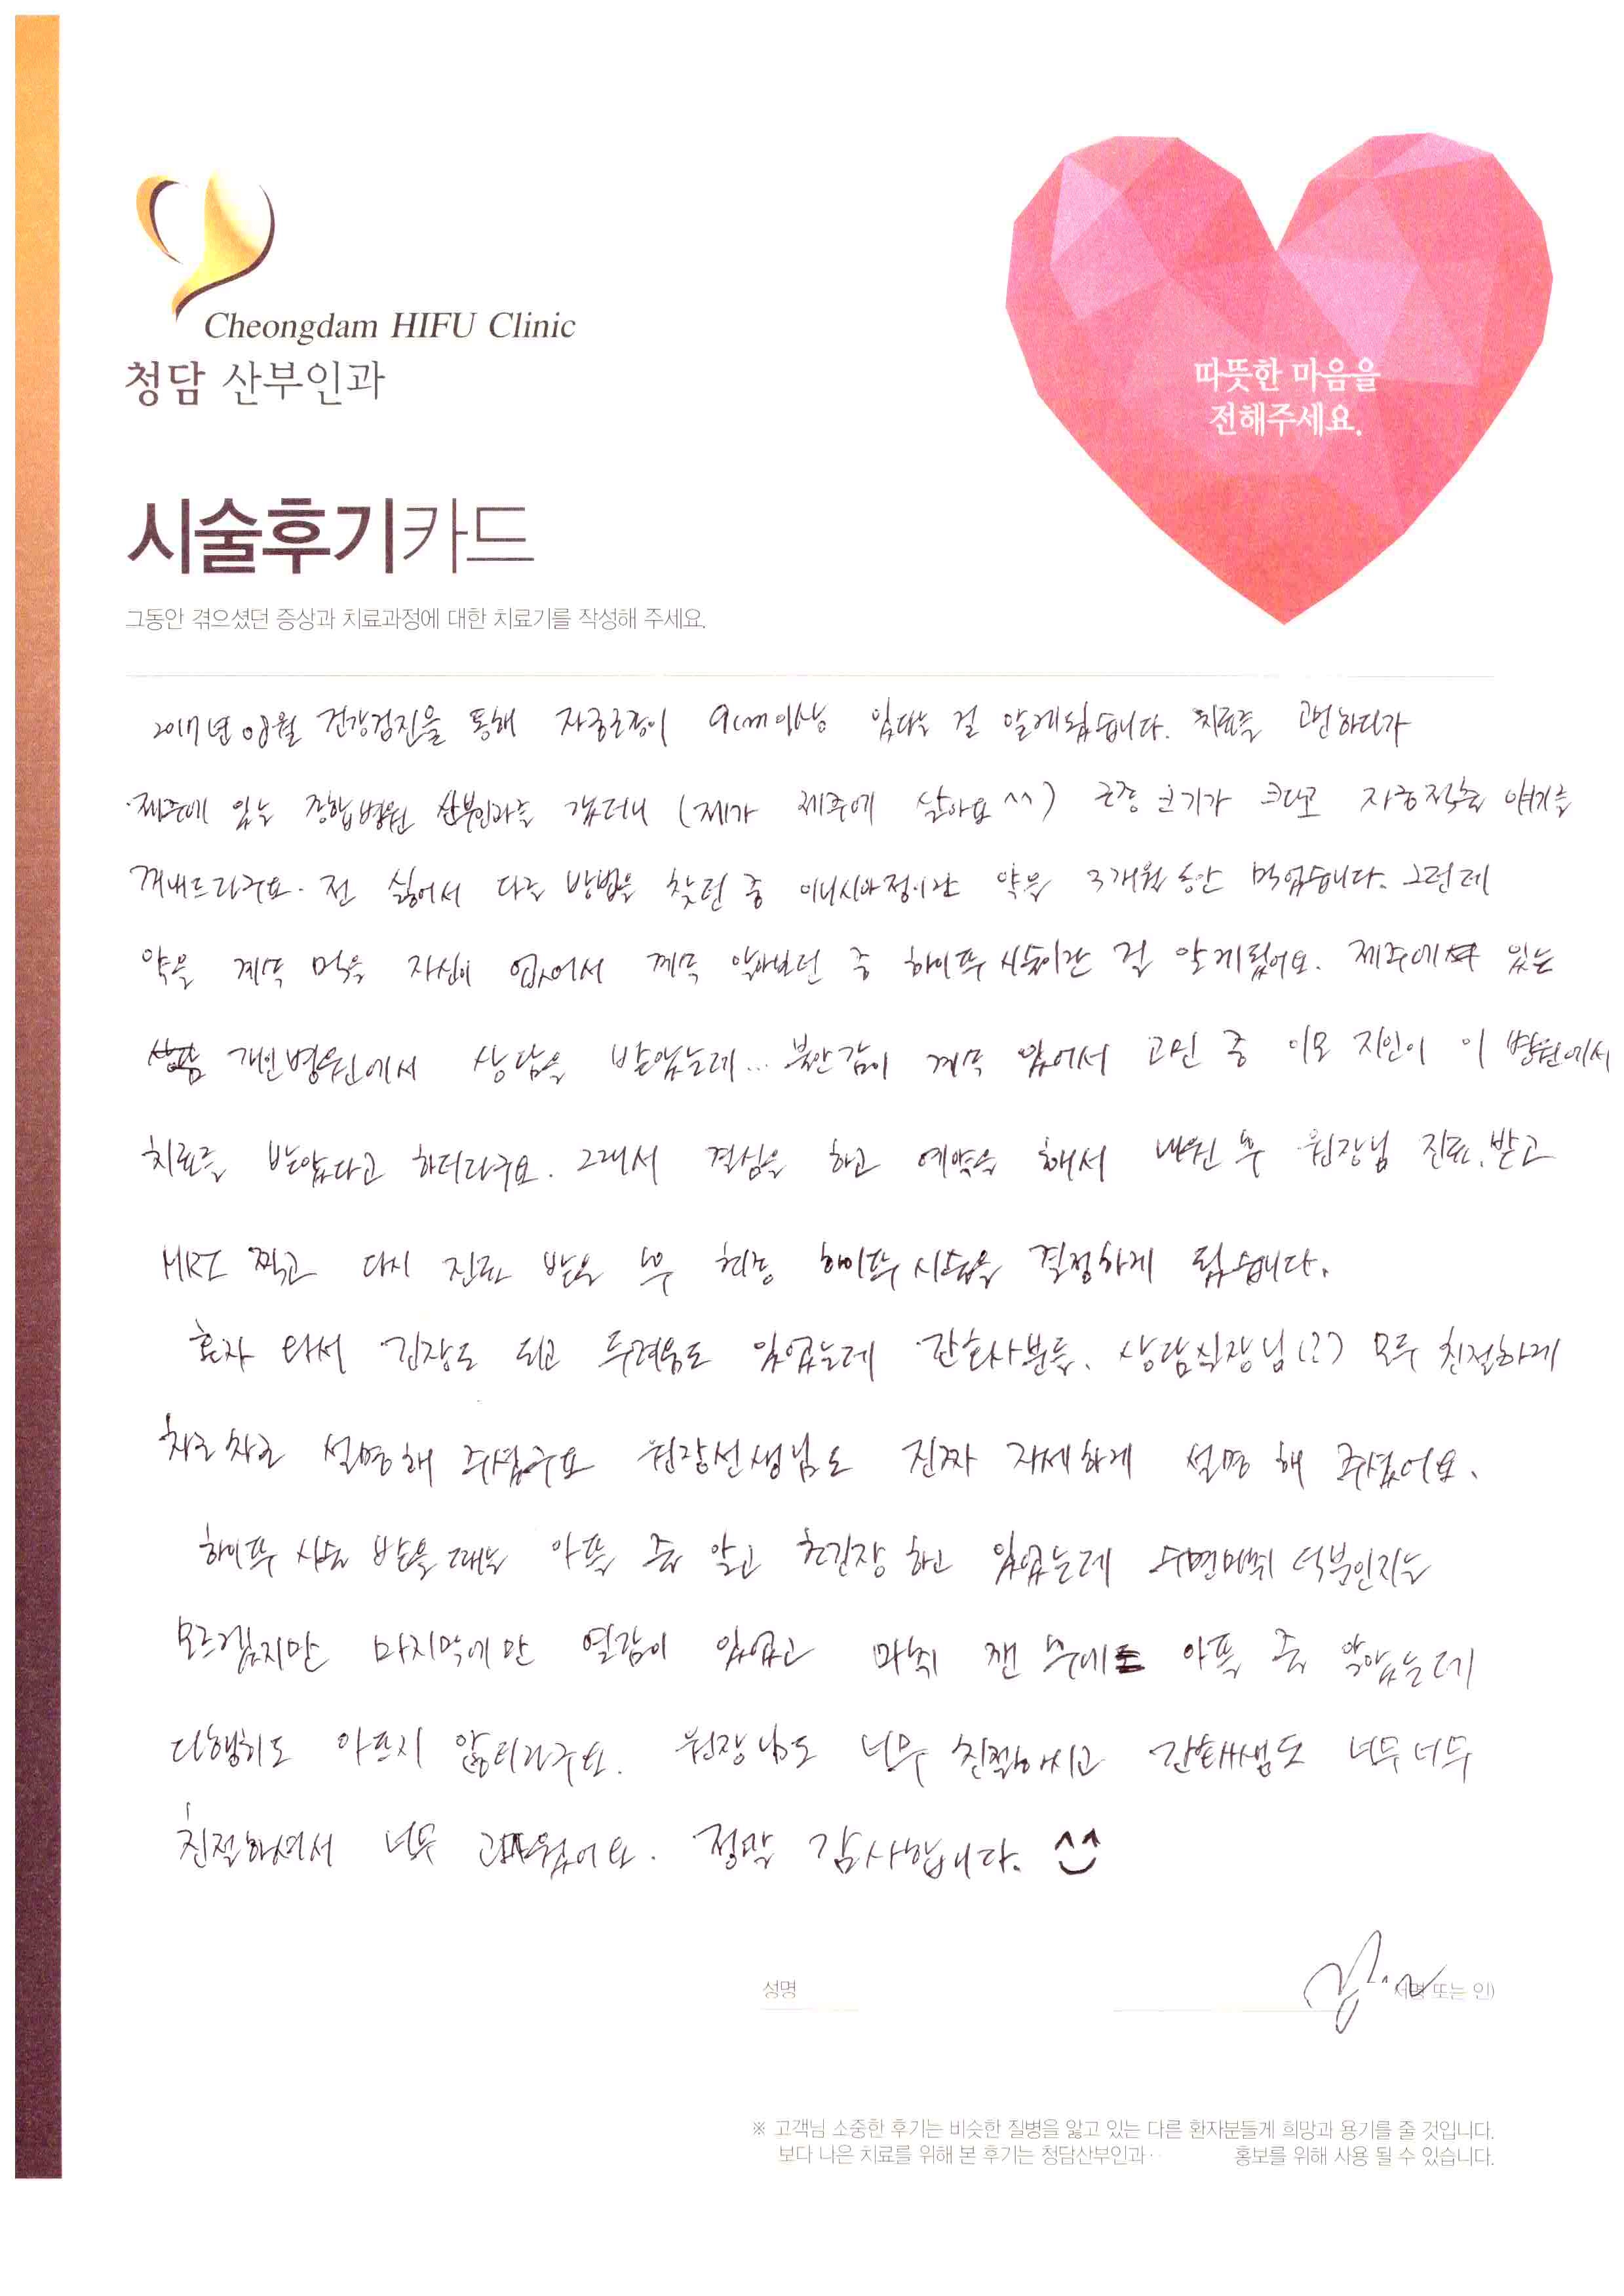 Cheongdam HIFU Clinic
청담 산부인과
따뜻한 마음을
전해주세요.
시술후기카드
그동안 겪으셨던 증상과 치료과정에 대한 치료기를 작성해 주세요.
2017년 08월 건강검진을 통해 자궁근종이 9cm이상 있다는 걸 알게되었습니다. 치료를 고민하다가
제주에 있는 종합병원 산부인과를 갔더니 (제가 제주에 살아요^^) 근종 크기가 크다고 자궁적출 얘기를
꺼내드라구요. 전 싫어서 다른 방법을 찾던 중 이니시아정이란 약을 3개월 동안 먹었습니다. 그런데
약을 계속 먹을 자신이 없어서 계속 알아보던 중 하이푸 시술이란 걸 알게됐어요. 제주에 있는
개인병원에서 상담을 받았는데... 불안감이 계속 있어서 고민 중 이모 지인이 이 병원에서
치료를 받았다고 하더라구요. 그래서 결심을 하고 예약을 해서 내원 후 원장님 진료.받고
MRI 찍고 다시 진료 받은 후 최종 하이푸 시술을 결정하게 됐습니다.
혼자 와서 긴장도 되고 두려움도 있었는데 간호사분들, 상담실장님(?) 모두 친절하게
차근차근 설명해 주셨구요 원장선생님도 진짜 자세하게 설명 해 주셨어요.
하이푸 시술 받을 때는 아플 줄 알고 초긴장 하고 있었는데 수면마취 덕분인지는
모르겠지만 마지막에만 열감이 있었고 마취 깬 후에 아플 줄 알았는데
다행히도 아프지 않더라구요. 원장님도 너무 친절하시고 간호사샘도 너무너무
친절하셔서 너무 고마웠어요. 정말 감사합니다. ^^
성명
서명 또는 인)
※ 고객님 소중한 후기는 비슷한 질병을 앓고 있는 다른 환자분들게 희망과 용기를 줄 것입니다.
보다 나은 치료를 위해 본 후기는 청담산부인과 홍보를 위해 사용 될 수 있습니다.